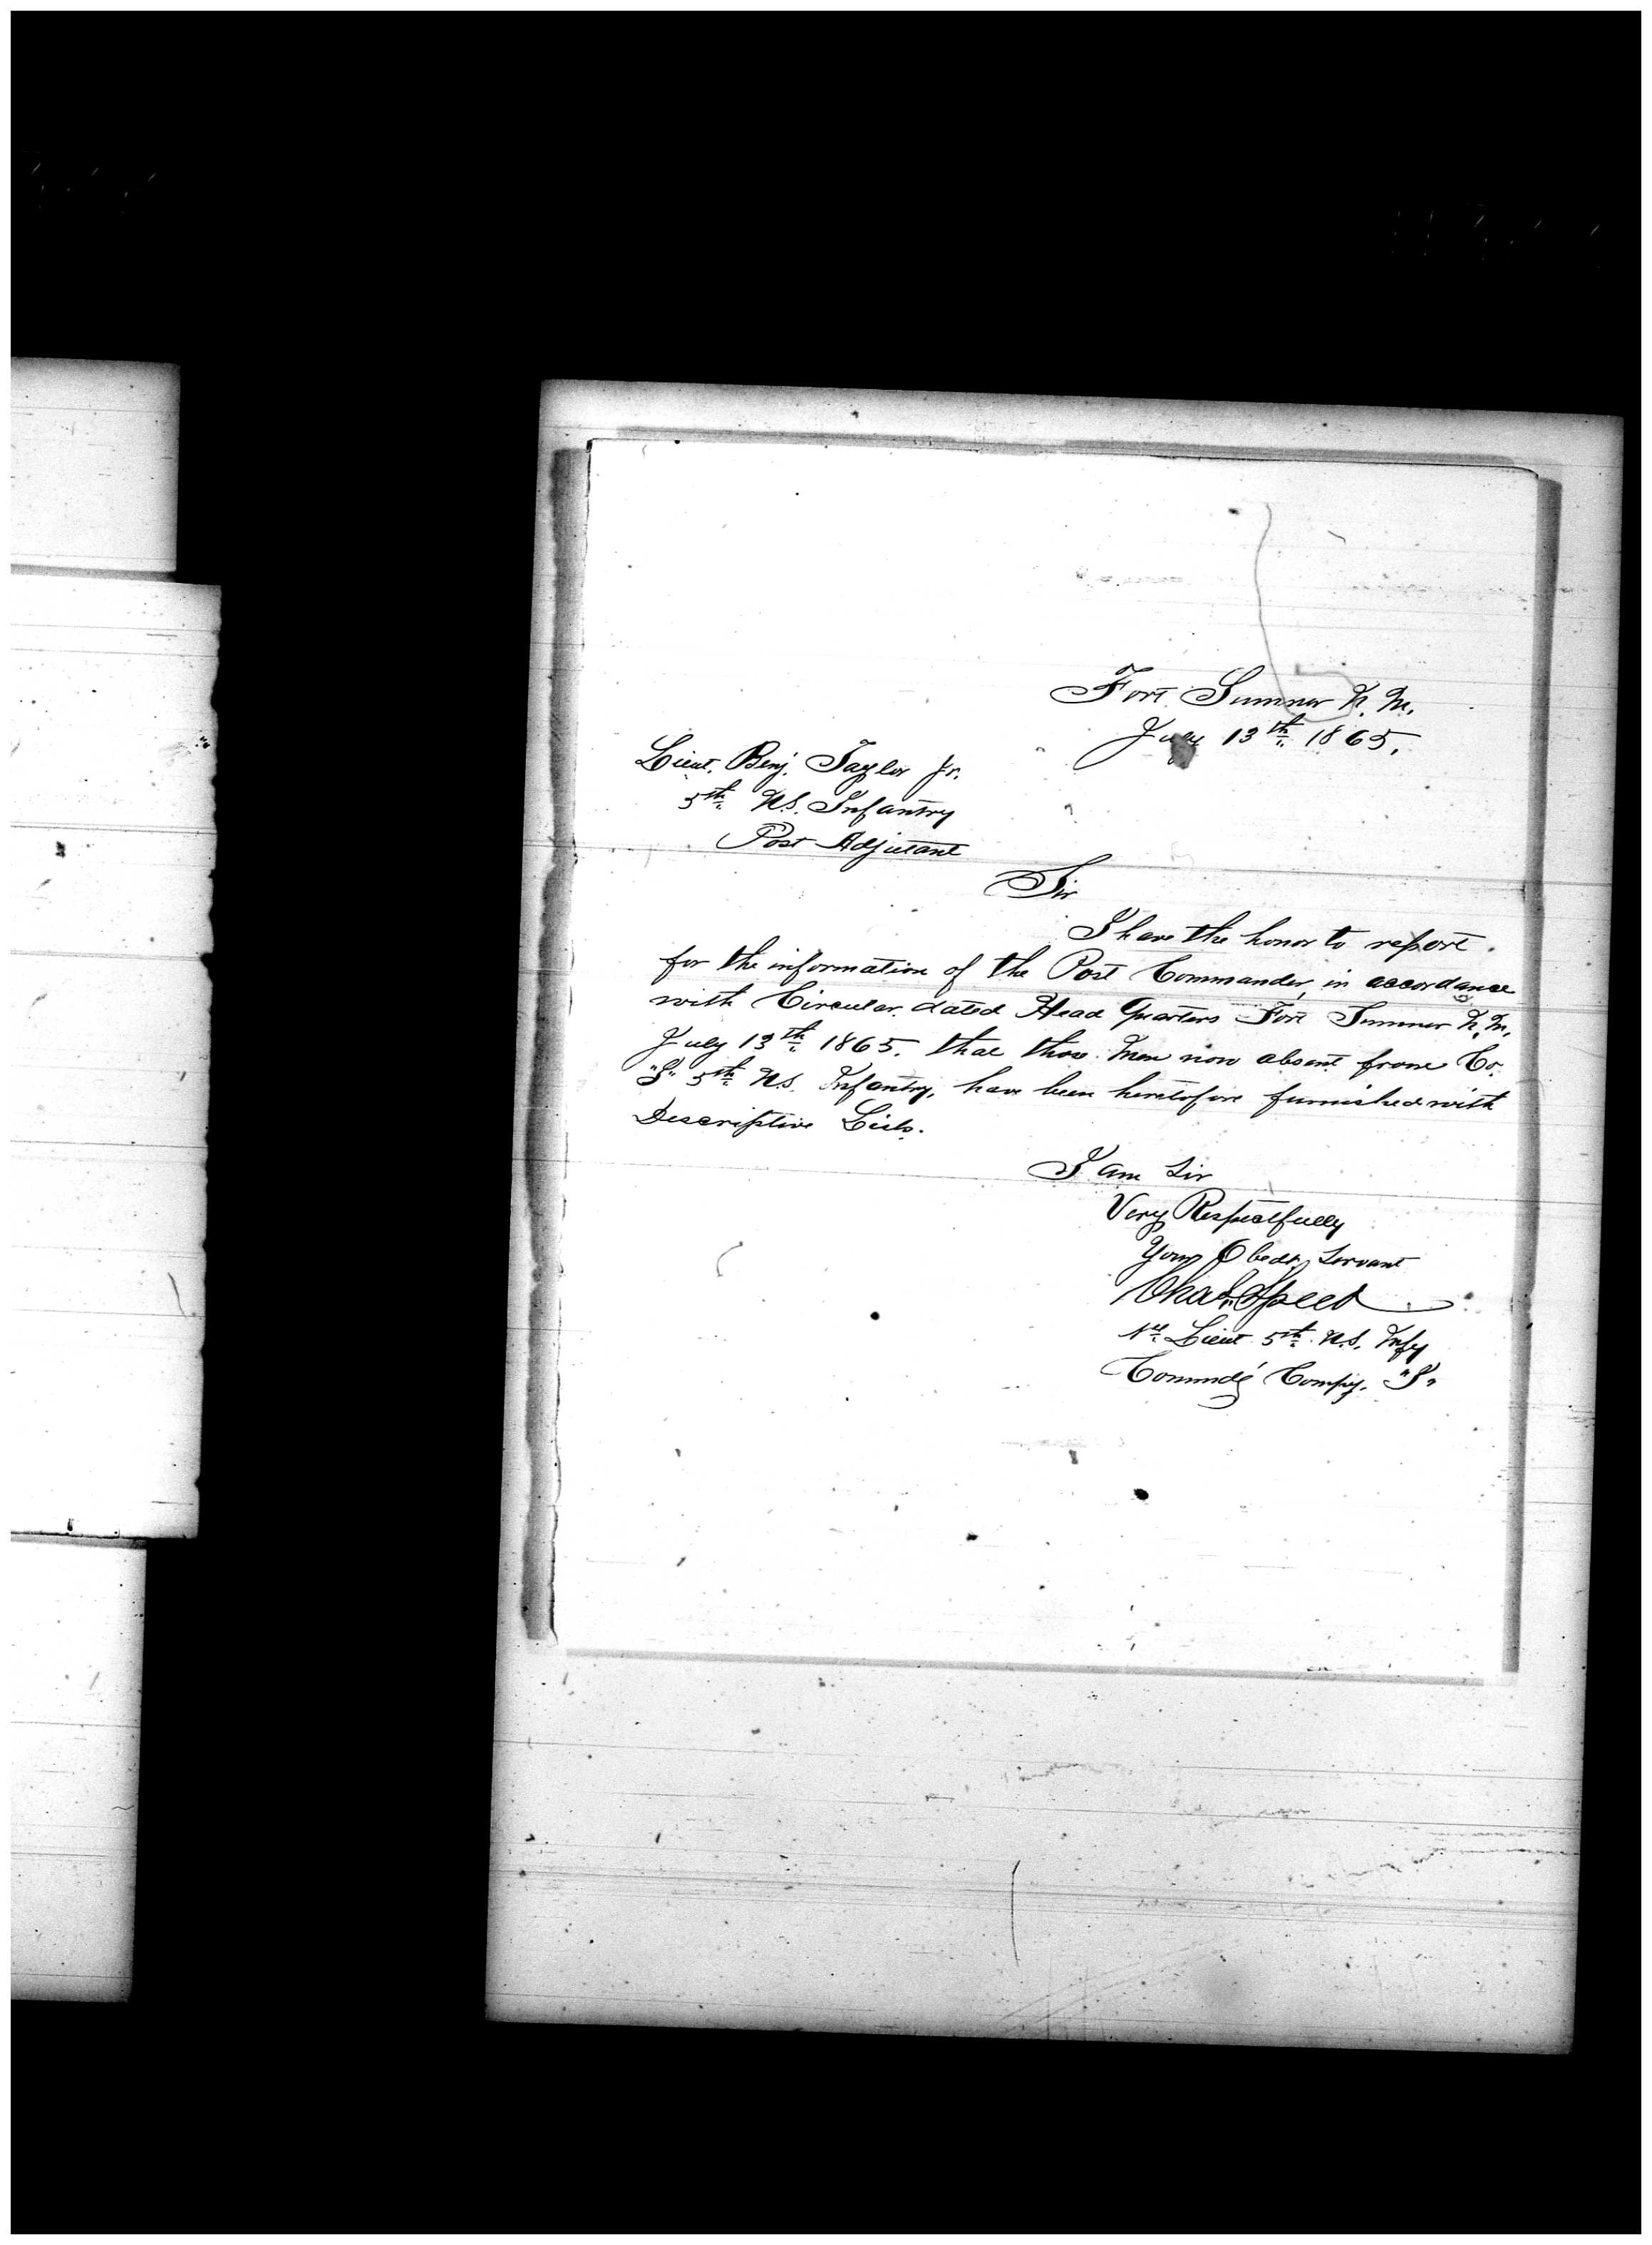 Fort Sumner N. M.
July 13th 1865.
Lieut. Benj. Taylor Jr.
5th U.S. Infantry
Post Adjutant
Sir
I have the honor to report
for the information of the Post Commander, in accordance
with Circular dated Head Quarters Fort Sumner N. M.
July 13th 1865. that those men now absent from Co.
"I" 5th U.S. Infantry, have been heretofore furnished with
Descriptive Lists.
I am Sir
Very Respectfully
Your Obedt. Servant
Chas. Speed
1st Lieut. 5th U.S. Infy
Commdg Compy. "I"